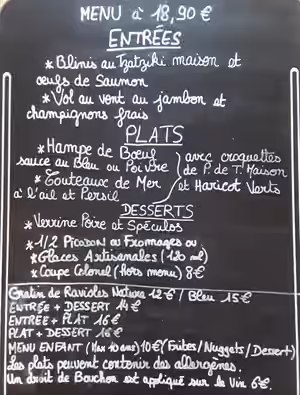 MENU à 18,90 €
ENTRÉES
* Blinis au Tzatziki maison et
œufs de Saumon
* Vol au vent au jambon et
champignons frais
PLATS
* Hampe de Bœuf
sauce au Bleu ou Poivre
* Couteaux de Mer
à l'ail et Persil
avec croquettes
de P. de T. Maison
et Haricot Verts
DESSERTS
* Verrine Poire et Spéculos
* 1/2 Picodon ou Fromages ou
* Glaces Artisanales (120 ml)
* Coupe Colonel (hors menu) 8€
Gratin de Ravioles Nature 12€ / Bleu 15€
ENTRÉE + DESSERT 14€
ENTRÉE + PLAT 16€
PLAT + DESSERT 16€
MENU ENFANT (Max 10 ans) 10€ (Frites/Nuggets/Dessert)
Les plats peuvent contenir des allergènes.
Un droit de Bouchon est appliqué sur le Vin 6€.